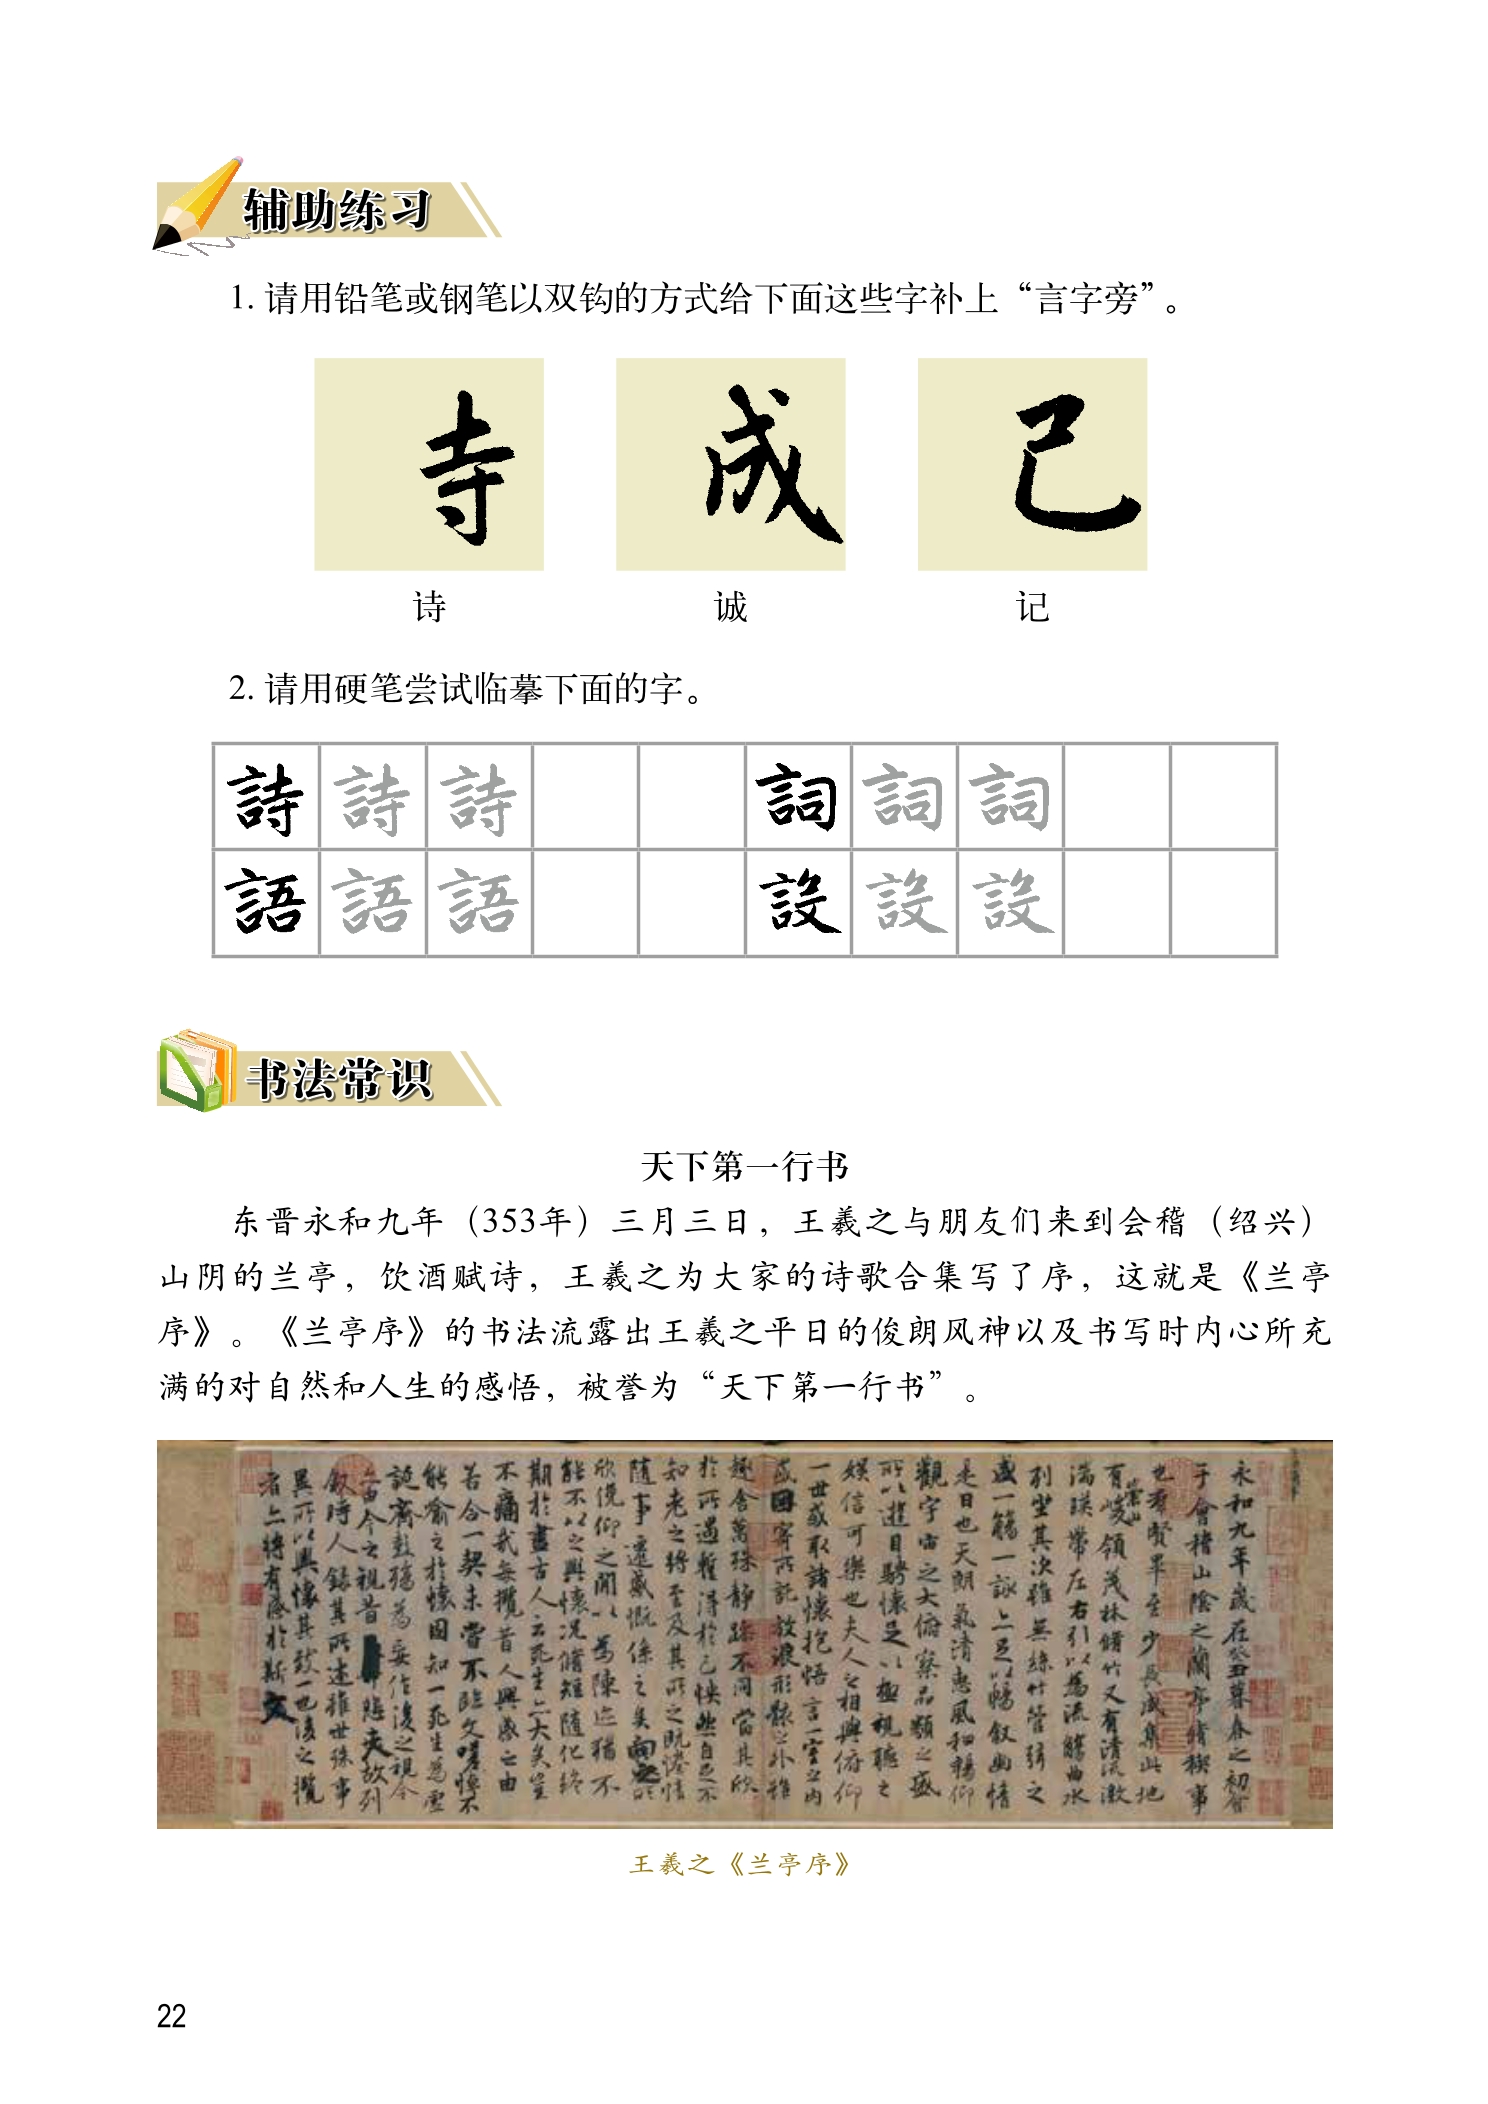 辅助练习
1. 请用铅笔或钢笔以双钩的方式给下面这些字补上“言字旁”。
寺 成 己
诗 诚 记
2. 请用硬笔尝试临摹下面的字。
詩 詩 詩 詞 詞 詞
語 語 語 設 設 設
书法常识
天下第一行书
东晋永和九年（353年）三月三日，王羲之与朋友们来到会稽（绍兴）
山阴的兰亭，饮酒赋诗，王羲之为大家的诗歌合集写了序，这就是《兰亭
序》。《兰亭序》的书法流露出王羲之平日的俊朗风神以及书写时内心所充
满的对自然和人生的感悟，被誉为“天下第一行书”。
永和九年歲在癸丑暮春之初會
于會稽山陰之蘭亭脩稧事
也羣賢畢至少長咸集此地
有崇山峻領茂林脩竹又有清流激
湍暎帶左右引以為流觴曲水
列坐其次雖無絲竹管弦之
盛一觴一詠亦足以暢敘幽情
是日也天朗氣清惠風和暢仰
觀宇宙之大俯察品類之盛
所以遊目騁懷足以極視聽之
娛信可樂也夫人之相與俯仰
一世或取諸懷抱悟言一室之內
或因寄所託放浪形骸之外雖
趣舍萬殊靜躁不同當其欣
於所遇暫得於己怏然自足不
知老之將至及其所之既惓情
隨事遷感慨係之矣向之所
欣俛仰之間以為陳迹猶不
能不以之興懷況脩短隨化終
期於盡古人云死生亦大矣豈
不痛哉每攬昔人興感之由
若合一契未嘗不臨文嗟悼不
能喻之於懷固知一死生為虛
誕齊彭殤為妄作後之視今
亦由今之視昔悲夫故列
敘時人錄其所述雖世殊事
異所以興懷其致一也後之攬
者亦將有感於斯文
王羲之《兰亭序》
22